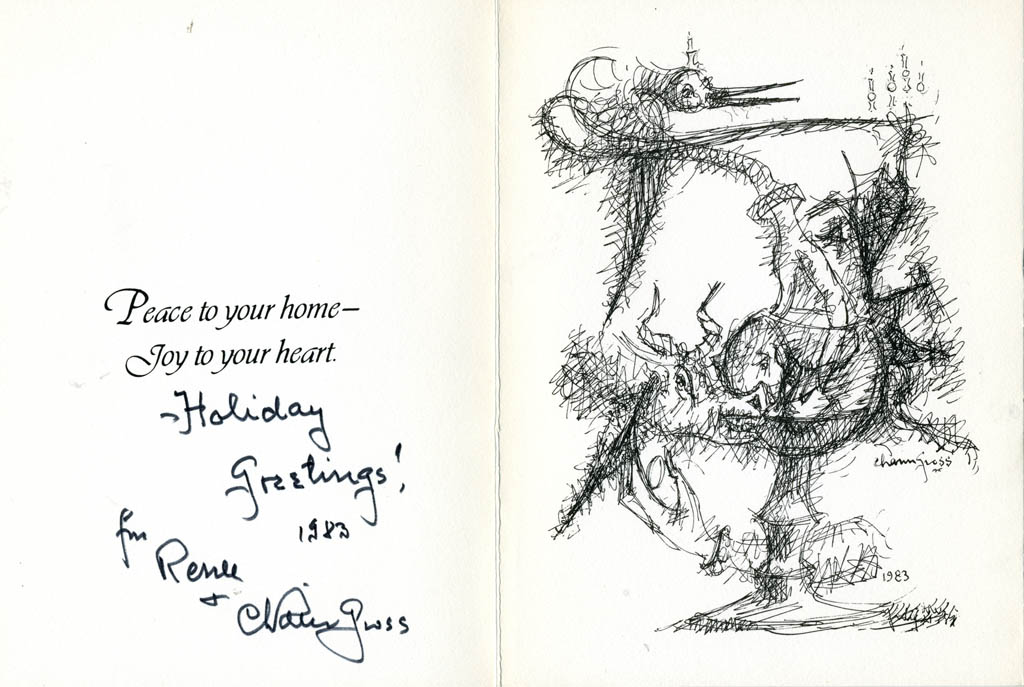 Peace to your home—
Joy to your heart.
-Holiday
Greetings!
1983
fm
Renee
+
Chaim Gross
chaim gross
1983